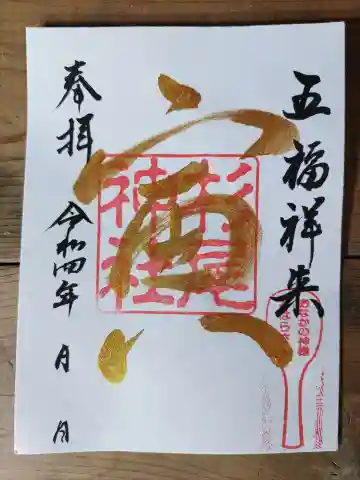 五福祥来
寅
杉尾
神社
奉拝
令和四年 月 日